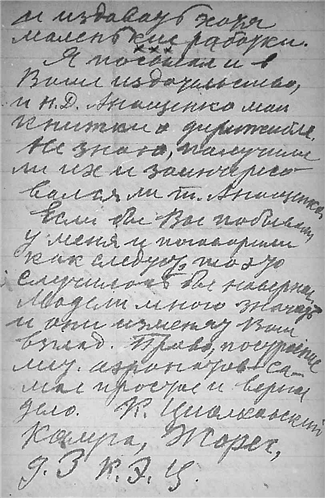 и издавать хотя
маленькие работки.
* * *
Я посылал и в
Ваше издательство,
и Н.Д. Анощенко мои
книжки о дирижабле.
Не знаю, получили
ли их и заинтересо-
вался ли т. Анощенко.
Если бы Вы побывали
у меня и поговорили
как следует, то это
случилось бы наверно.
Модели много значат
и они изменят Ваш
взгляд. Право, построение
мет. аэронатов са-
мое простое и верное
дело. К. Циолковский
Калуга, Жорес,
д. 3 К. Э. Ц.